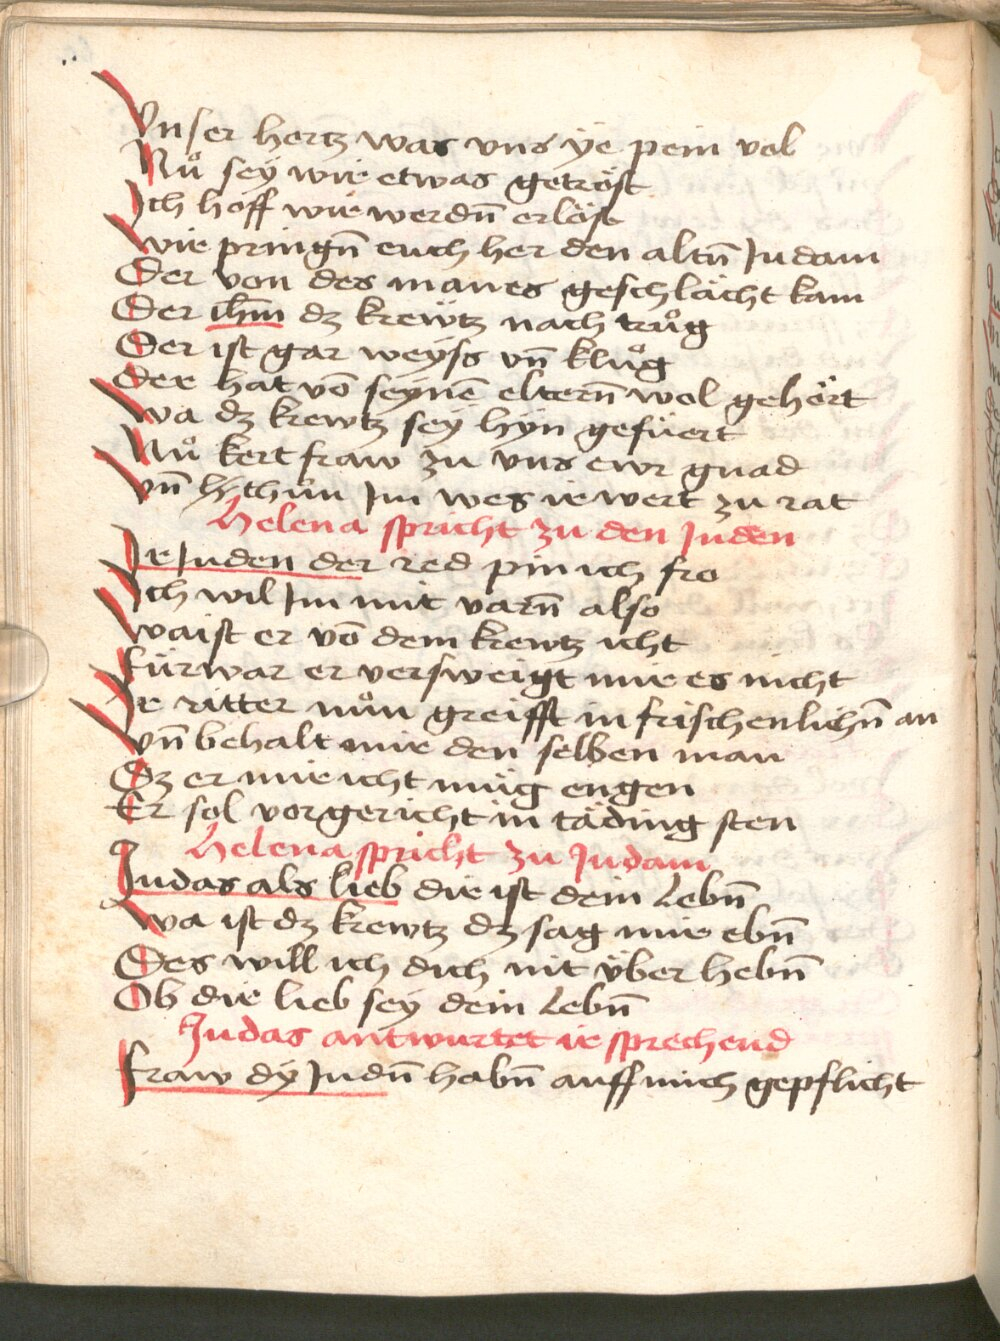 Vnser hertz was vns ye pein vol
Nuͦ sey wir etwas getröst
Ich hoff wir werdn̄ erlöst
Wir pringn̄ euch her den altn̄ Judam
Der von des manes geschlächt kam
Der ih̄m dz krewtz nach truͦg
Der ist gar weyss vn̄ kluͦg
Der hat vō seynē elternn̄ wol gehört
Wa dz krewtz sey hyn gefüert
Nuͦ kert fraw zu vns ewr gnad
Vn̄ thün Im wes ir wert zu rat
Helena spricht zu den Juden
Ir Juden der red pin ich fro
Ich wil Im mit varn̄ also
Waist er vō dem krewtz icht
Fürwar er versweigt mir es nicht
Ir ritter nuͦn greifft in frischenlichn̄ an
Vn̄ behalt mir den selben man
Dz er mir icht müg engen
Er sol vor gericht in täding sten
Helena spricht zu Judam
Judas als lieb dir ist dein Lebn̄
Wa ist dz krewtz dz sag mir ebn̄
Des will ich dich nit über hebn̄
Ob dir lieb sey dein Lebn̄
Judas antwurtet ir sprechend
Fraw dy Judn̄ habn̄ auff mich gepflicht